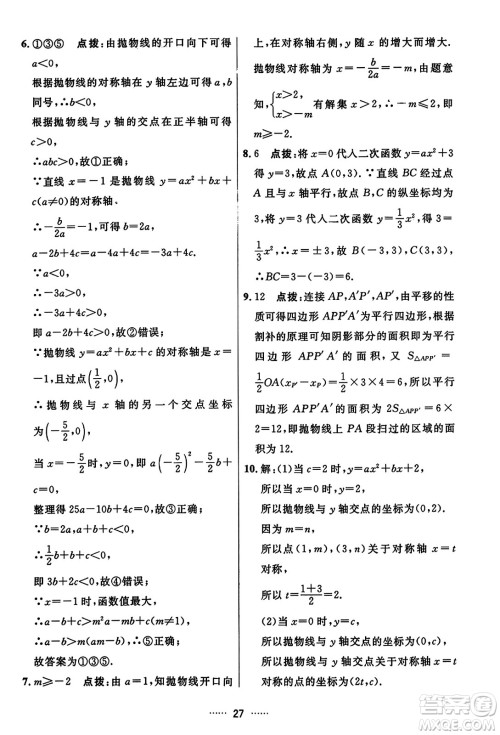 6.①③⑤ 点拨:由抛物线的开口向下可得
a<0,
根据抛物线的对称轴在 y 轴左边可得 a,b
同号,∴b<0.
根据抛物线与 y 轴的交点在正半轴可得
c>0,
∴abc>0,故①正确;
∵直线 x=-1 是抛物线 y=ax²+bx+c
(a≠0)的对称轴.
∴-b/2a=-1,可得 b=2a,
a-2b+4c=a-4a+4c=-3a+4c.
∵a<0,
∴-3a>0,
∴-3a+4c>0,
即 a-2b+4c>0,故②错误;
∵抛物线 y=ax²+bx+c 的对称轴是 x=
-1.且过点(1/2,0),
∴抛物线与 x 轴的另一个交点坐标为
(-5/2,0).
当 x=-5/2时,y=0,即 a(-5/2)²-5/2b+c=0,
整理得 25a-10b+4c=0,故③正确;
∵b=2a,a+b+c<0,
∴1/2b+b+c<0,
即 3b+2c<0,故④错误;
∵x=-1 时,函数值最大,
∴a-b+c>m²a-mb+c(m≠1),
∴a-b>m(am-b),∴⑤正确;
故答案为①③⑤.
7.m≥-2 点拨:由 a=1,知抛物线开口向
上,在对称轴右侧,y 随 x 的增大而增大.
抛物线对称轴为 x=-b/2a=-m,由题意
知,{x>2, x>-m}有解集 x>2,∴-m≤2,即
m≥-2.
8.6 点拨:将 x=0 代入二次函数 y=ax²+3
得 y=3,故点 A(0,3).∵直线 BC 过点
A 且与 x 轴平行,故点 B,C 的纵坐标均为
3,将 y=3 代入二次函数 y=1/3x²得 3=
1/3x²,∴x=±3,故点 B(-3,3),C(3,3),
∴BC=|-3-3|=6.
9.12 点拨:连接 AP,A′P′,由平移的性
质可得四边形 APP′A′为平行四边形,根据
割补的原理可知阴影部分的面积即为平行
四边形 APP′A′的面积,又 S△APP′=
1/2OA(xP′-xP)=1/2×3×4=6,∴平行四
边形 APP′A′的面积为 2S△APP′=6×2=
12,故抛物线 PA 段扫过的区域的面
积为 12.
10.解:(1)当 c=2 时,y=ax²+bx+2,
所以当 x=0 时,y=2,
所以抛物线与 y 轴交点的坐标为(0,2).
因为 m=n,
所以点(1,m),(3,n)关于对称轴 x=t
对称,
所以 t=(1+3)/2=2.
(2)当 x=0 时,y=c,
所以抛物线与 y 轴交点关于对称轴 x=t
对称的点的坐标为(2t,c),
27